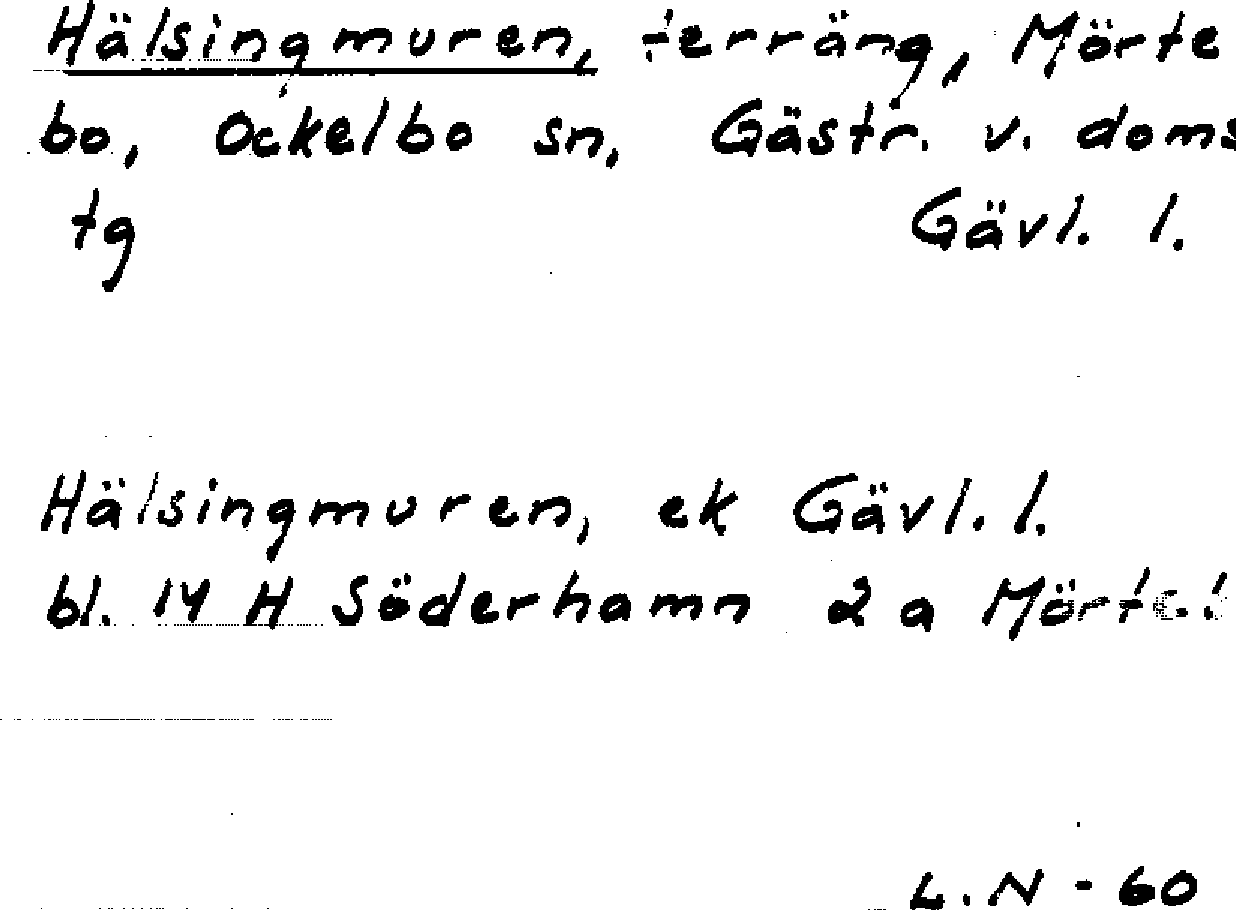 Hälsingmuren, terräng, Mörte
bo, Ockelbo sn, Gästr. v. doms
tg Gävl. l.
Hälsingmuren, ek Gävl. l.
bl. 14 H Söderhamn 2 a
L.N - 60